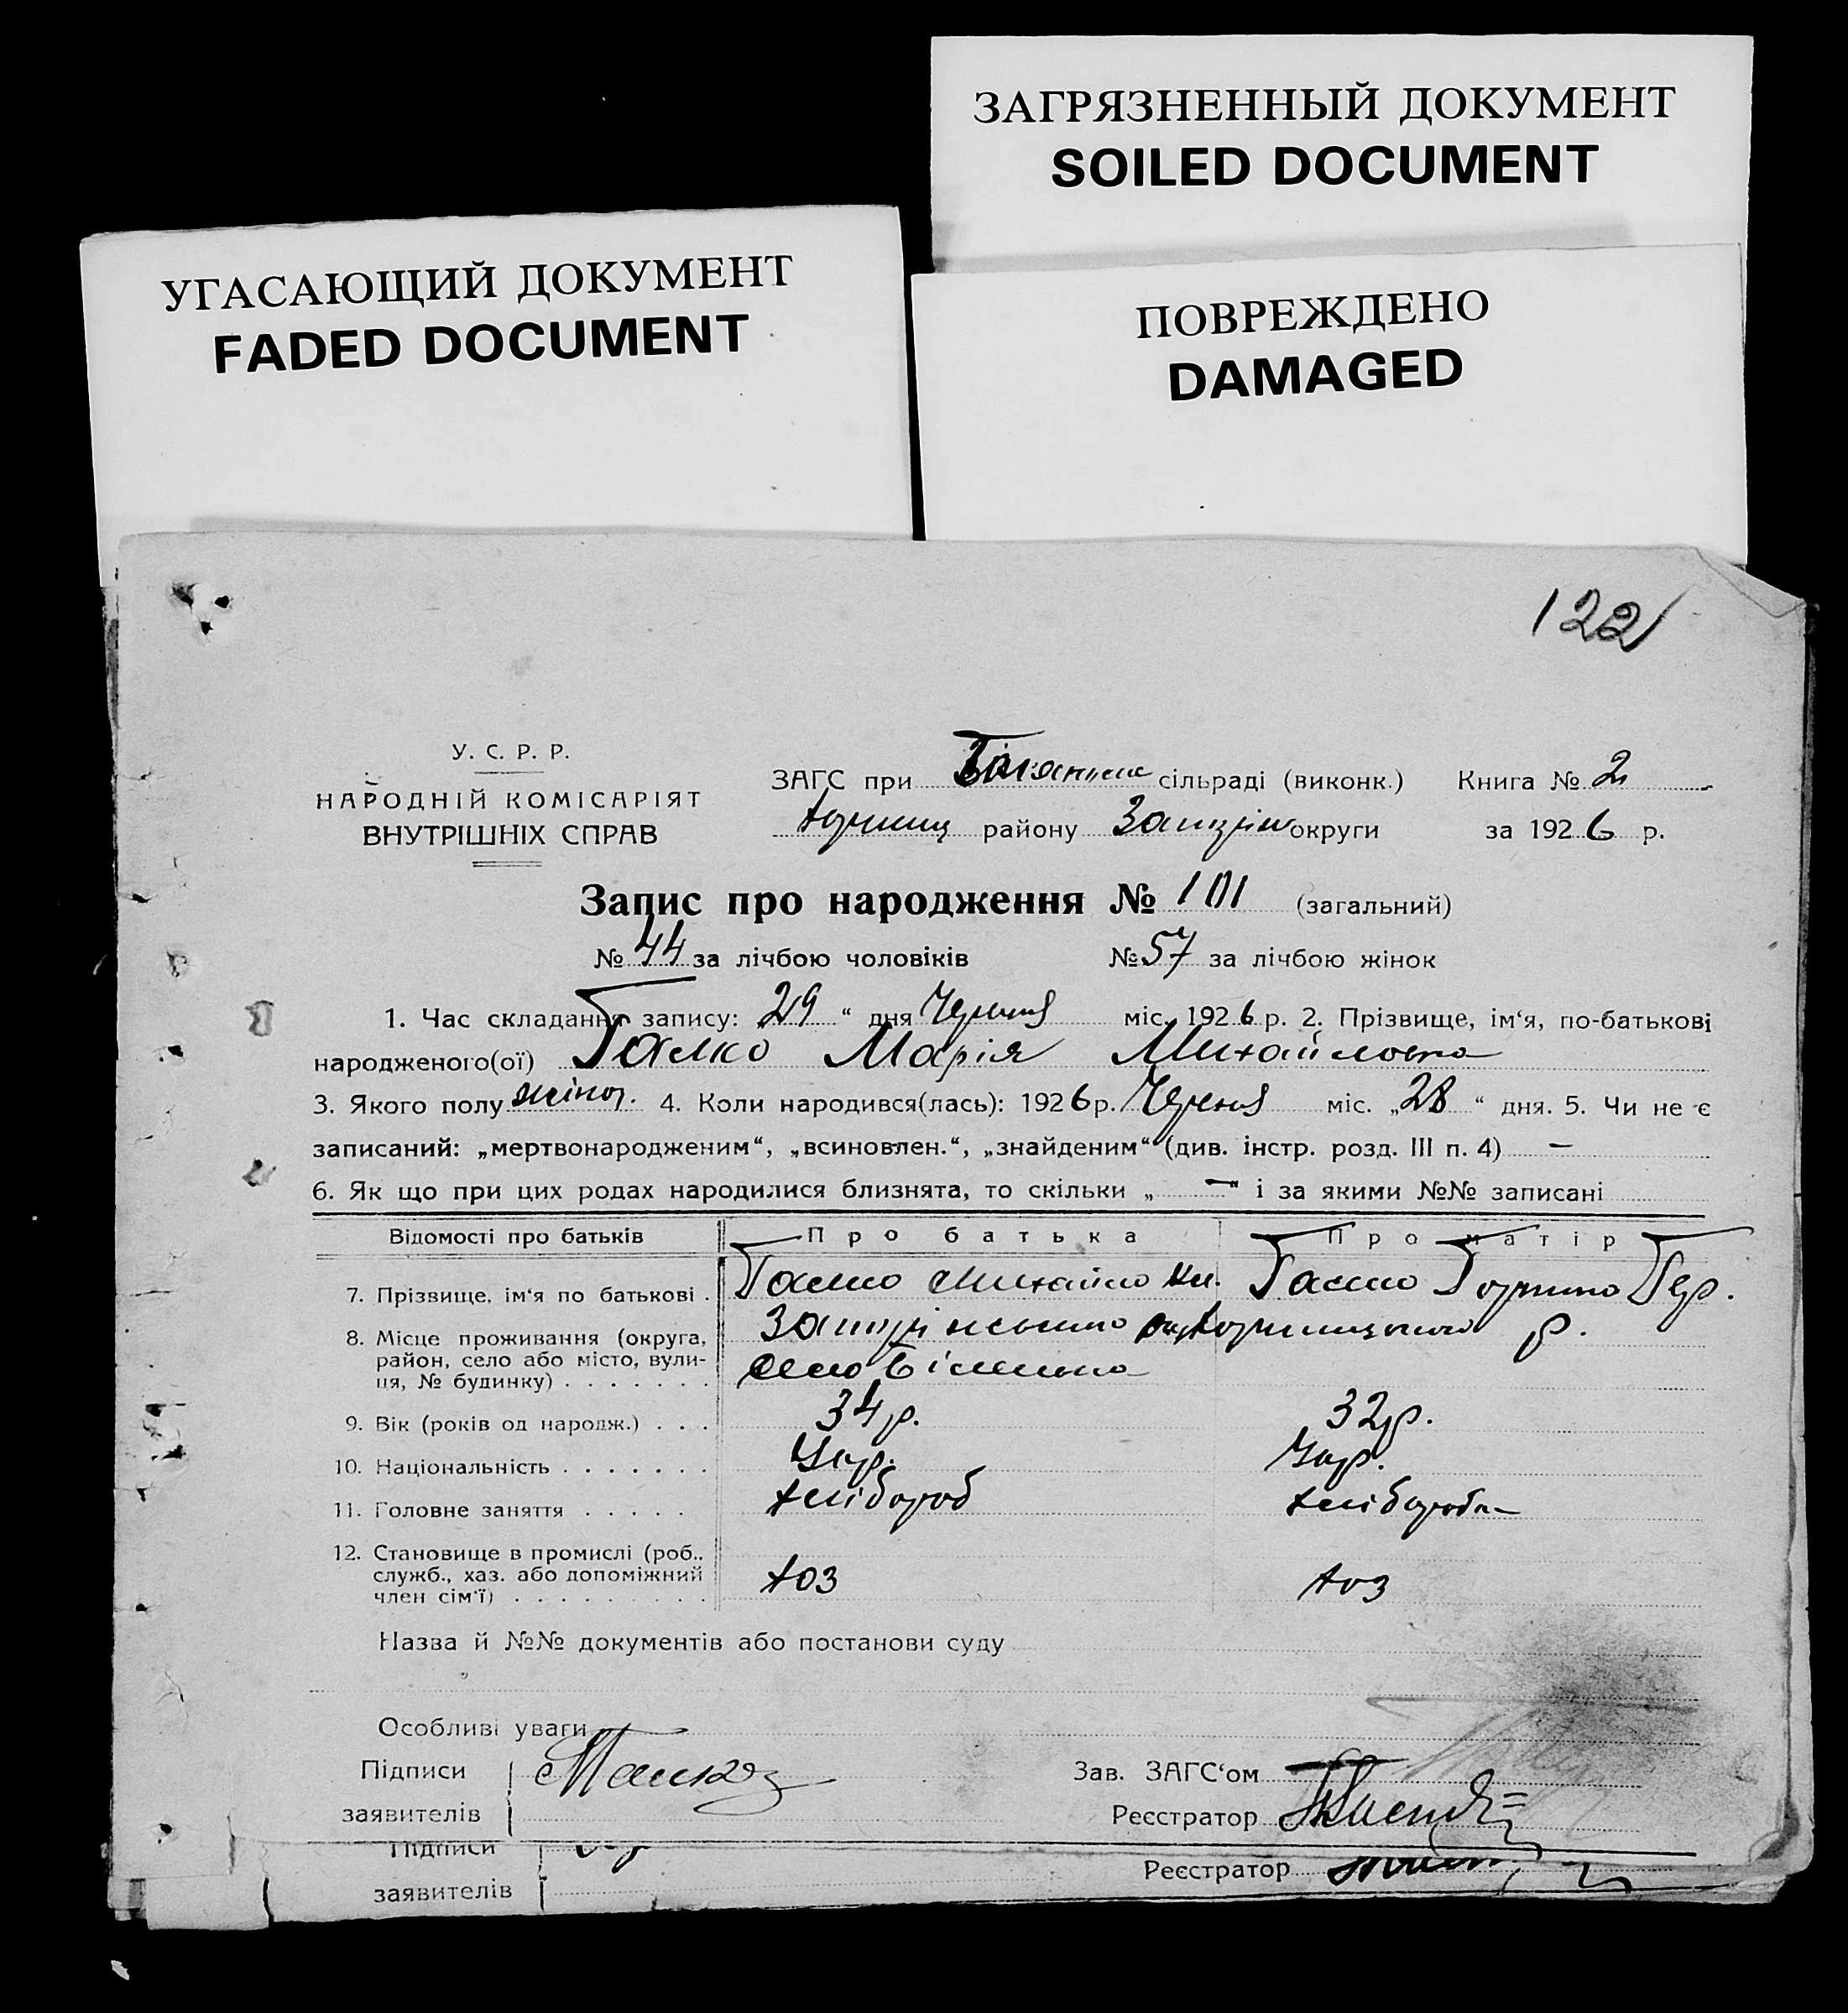 ЗАГРЯЗНЕННЫЙ ДОКУМЕНТ
SOILED DOCUMENT
УГАСАЮЩИЙ ДОКУМЕНТ
FADED DOCUMENT
ПОВРЕЖДЕНО
DAMAGED
122
У. С. Р. Р.
НАРОДНІЙ КОМІСАРІЯТ
ВНУТРІШНІХ СПРАВ
ЗАГС при сільраді (виконк.) Книга № 2
району округи за 1926 р.
Запис про народження № 101 (загальний)
№ 44 за лічбою чоловіків № 57 за лічбою жінок
1. Час складання запису: „29“ дня Червня міс. 1926 р. 2. Прізвище, ім‘я, по-батькові
народженого(ої) Галко Марія Михайловна
3. Якого полу жіноч. 4. Коли народився(лась): 1926 р. Червня міс. „28“ дня. 5. Чи не є
записаний: „мертвонародженим“, „всиновлен.“, „знайденим“ (див. інстр. розд. III п. 4) –
6. Як що при цих родах народилися близнята, то скільки „–“ і за якими №№ записані
Відомості про батьків Про батька Про матір
7. Прізвище, ім‘я по батькові . Галко Михайло Галко
8. Місце проживання (округа,
район, село або місто, вули-
ця, № будинку) . . . . . . . село
9. Вік (років од народж.) . . . 34 р. 32 р.
10. Національність . . . . . . . Укр. Укр.
11. Головне заняття . . . . . хлібороб хлібороб
12. Становище в промислі (роб.,
служб., хаз. або допоміжний
член сім‘ї) . . . . . . . . . хоз хоз
Назва й №№ документів або постанови суду
Особливі уваги
Підписи
заявителів
Зав. ЗАГС‘ом
Реєстратор
Підписи
заявителів
Реєстратор